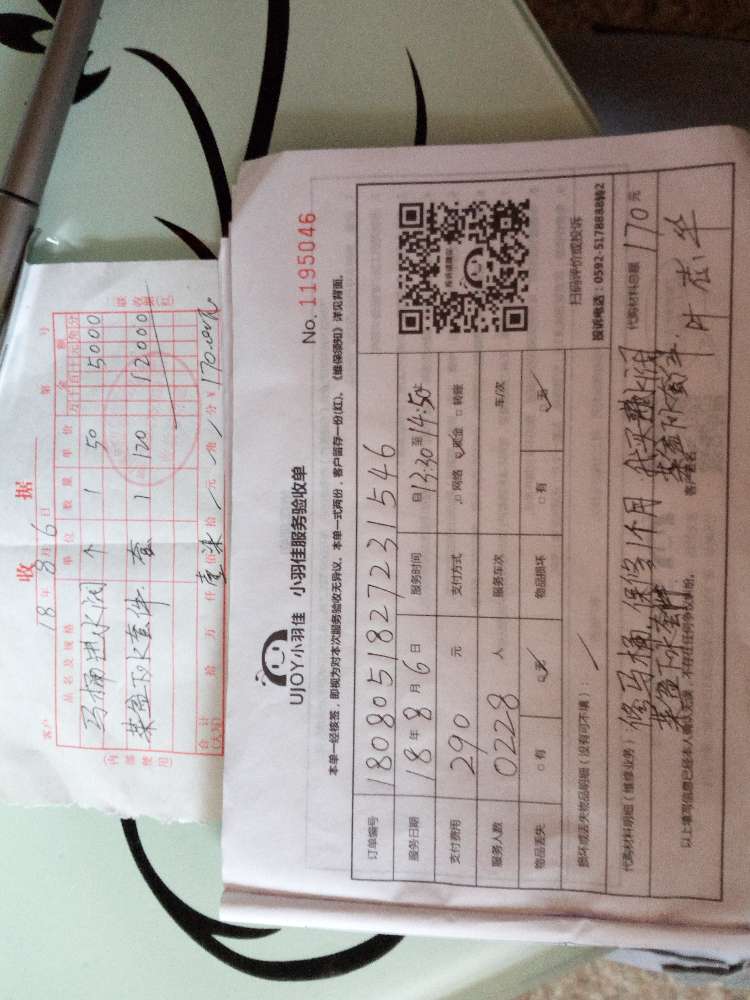 收 据
18年8月6日 第 号
客户
品名及规格 单位 数量 单价 金额
万千百十元角分
马桶进水阀 个 1 50 5000
菜盆下水套件 套 1 120 12000
合计(大写) 拾 万 仟 壹佰柒拾 元 角 分 ¥170.00元
(内部使用)
二联 收据(红)
UJOY小羽佳 小羽佳服务验收单
No. 1195046
本单一经核签,即视为对本次服务验收无异议。本单一式两份,客户留存一份(红)。《维保须知》详见背面。
订单编号 1808051827231546
服务日期 18年8月6日 服务时间 日13:30至14:50
支付费用 290 元 支付方式 网络 现金 转账
服务人数 0228 人 服务车次 车/次
物品丢失 有 无 物品损坏 有 无
扫码评价或投诉
投诉电话:0592-5178888转2
损坏或丢失物品明细(没有可不填):
代购材料明细(维修业务): 修马桶 保修1个月 代买进水阀 代购材料总额 170元
菜盆下水套件 菜盆下水套件
以上填写信息已经本人确认无误,不存在任何争议纠纷。 客户签名